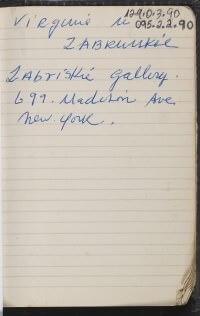 Virginie
129.0.3.90
095.2.2.90
ZABRUSKIE
ZAbriskie Gallery.
699. Madison Ave
New York.